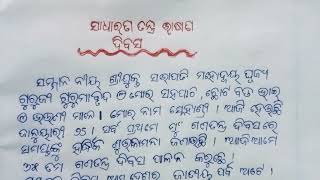 ସାଧାରଣ ତନ୍ତ୍ର ଭାଷଣ
ଦିବସ
ସମ୍ମାନ ନୀୟ ଶ୍ରୀଯୁକ୍ତ ସଭାପତି ମହୋଦୟ ପୂଜ୍ୟ
ଗୁରୁଜୀ ଗୁରୁମା ମୋର ସହପାଠୀ, ଛୋଟ ବଡ ଭାଇ
ଓ ଭଉଣୀ ମାନେ । ମୋର ନାମ ସେହାଣୀ । ଆଜି ହେଉଛି
ଜାନୁୟାରୀ ସର୍ବ ପ୍ରଥମେ ମୁଁ ଗଣତନ୍ତ୍ର ଦିବସରେ
ସମସ୍ତଙ୍କୁ ଶୁଭକାମନା ଜଣାଉଛି । ଆଜି ଆମେ
ତମ ଗଣତନ୍ତ୍ର ଦିବସ ପାଳନ କରୁଛେ
ଦିବସ ଆମ ଦେଶର ଜାତୀୟ ପର୍ବ ଅଟେ ।